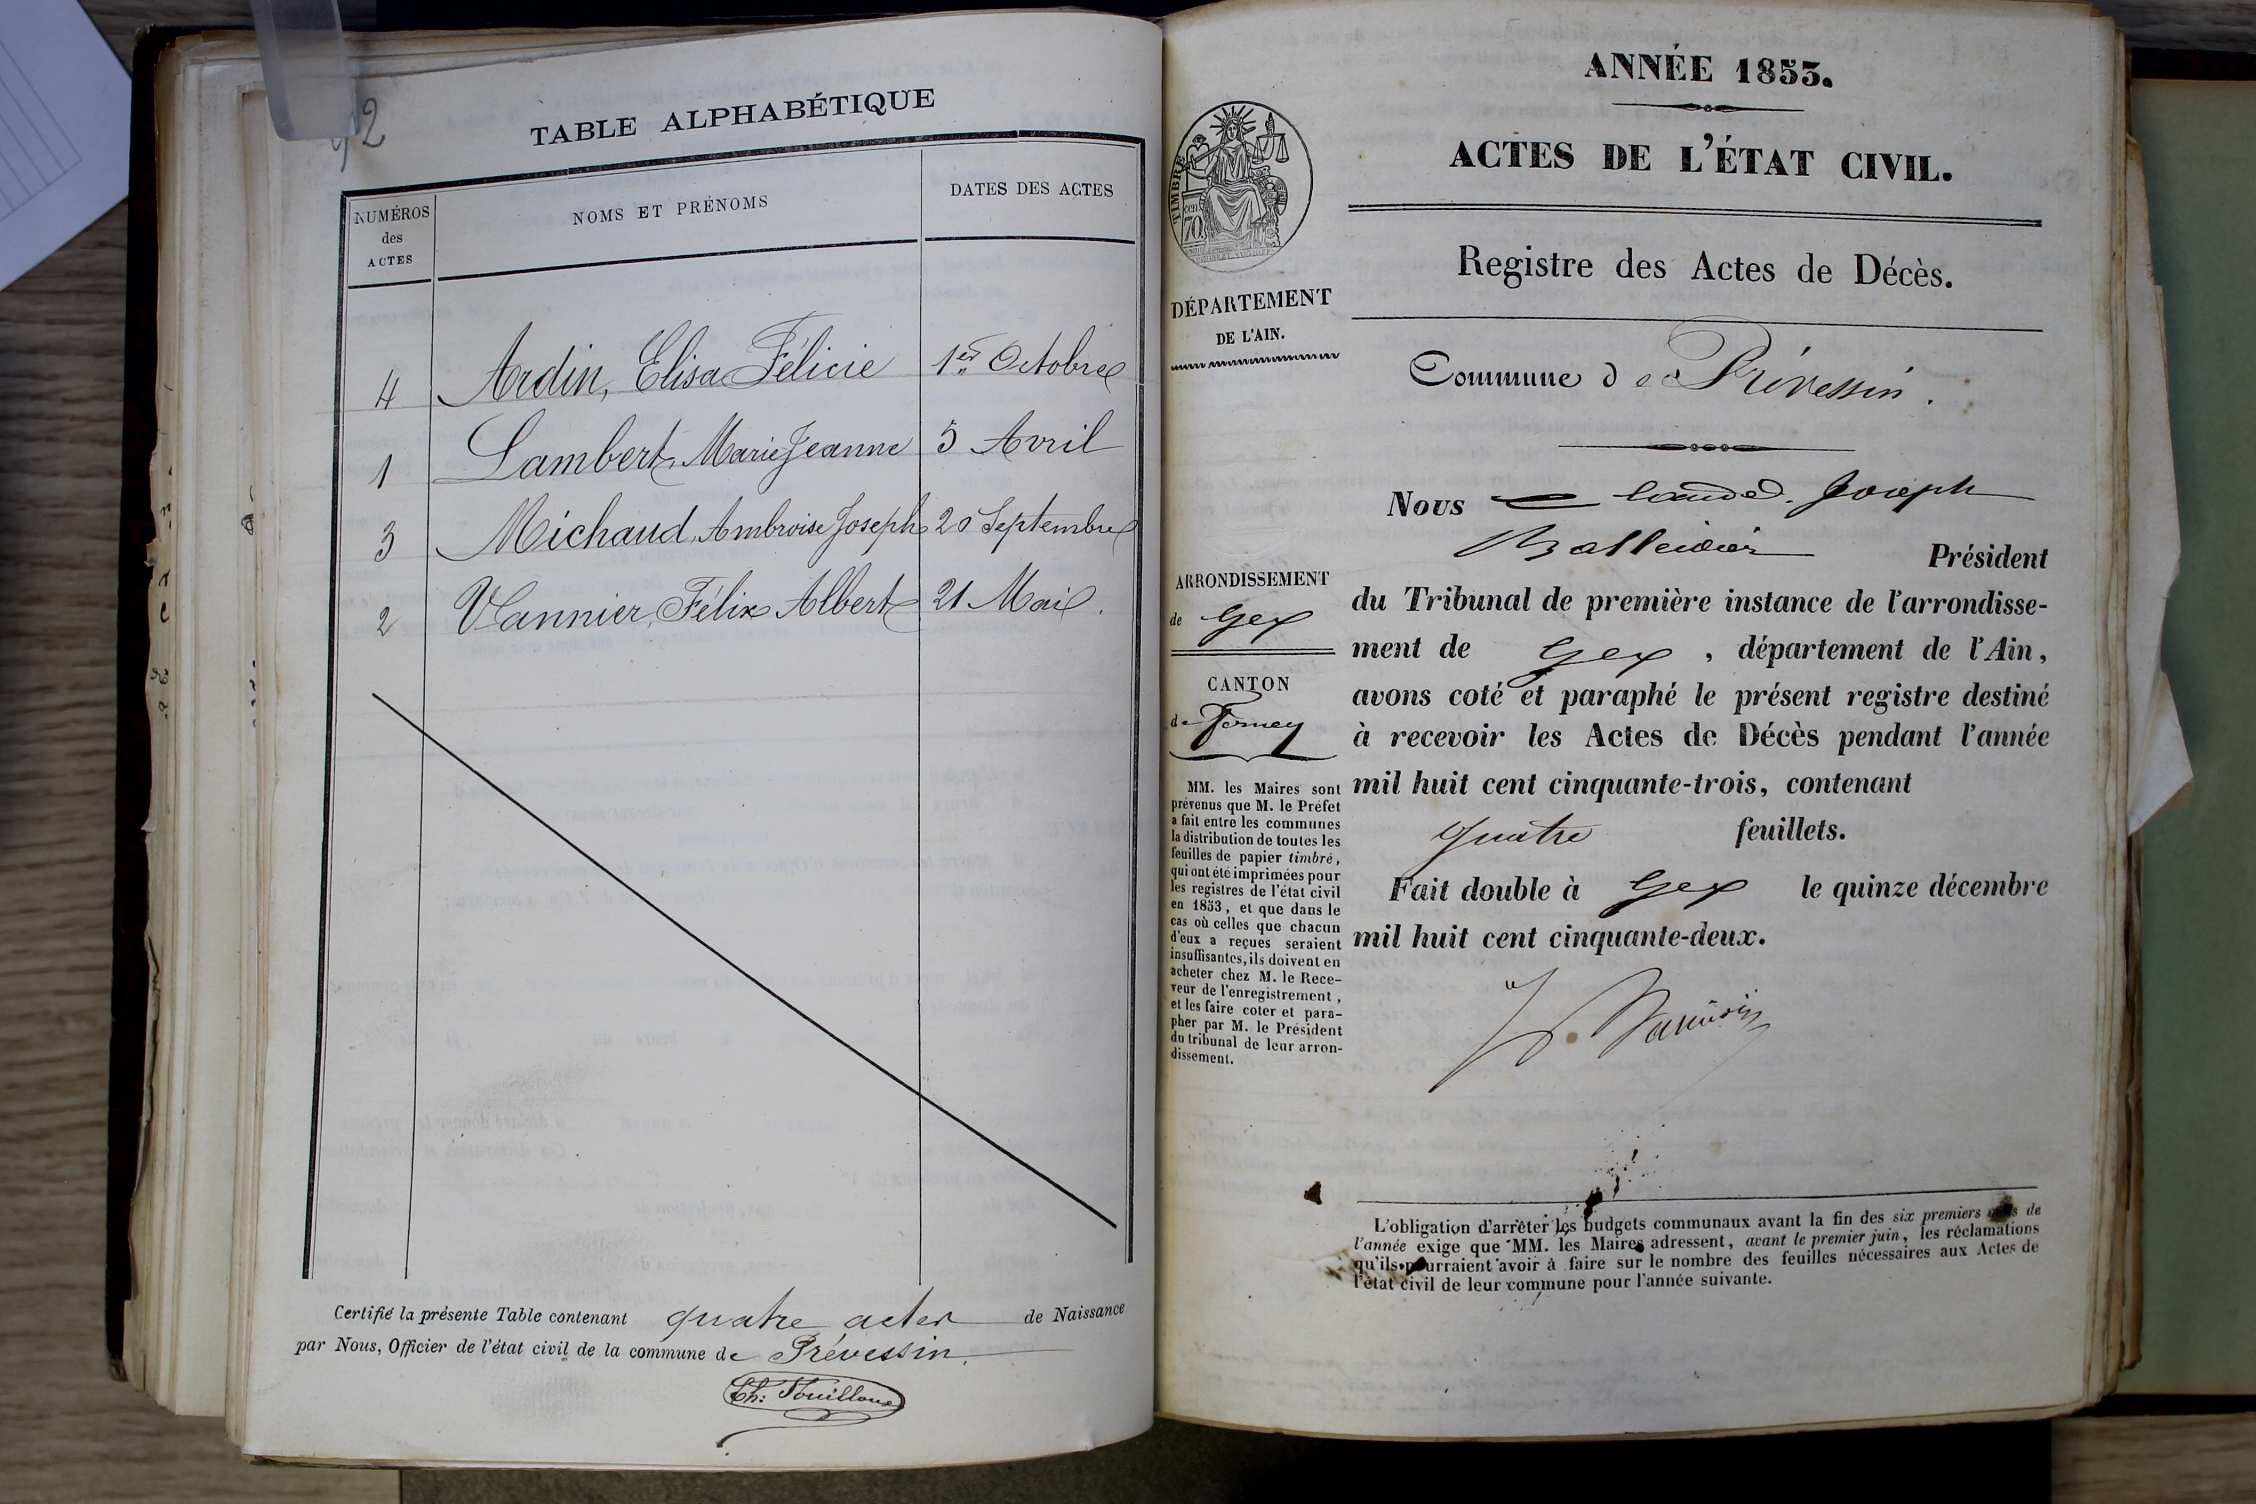 42
TABLE ALPHABÉTIQUE
NUMÉROS
des
ACTES
NOMS ET PRÉNOMS
DATES DES ACTES
4 Ardin, Elisa Félicie 1er Octobre
1 Lambert, Marie Jeanne 5 Avril
3 Michaud, Ambroise Joseph 20 Septembre
2 Vannier, Félix Albert 21 Mai.
Certifié la présente Table contenant quatre actes de Naissance
par Nous, Officier de l'état civil de la commune de Prévessin.
ANNÉE 1853.
ACTES DE L'ÉTAT CIVIL.
Registre des Actes de Décès.
TIMBRE
70
DÉPARTEMENT
DE L'AIN.
ARRONDISSEMENT
de Gex
CANTON
de Ferney
MM. les Maires sont
prévenus que M. le Préfet
a fait entre les communes
la distribution de toutes les
feuilles de papier timbré,
qui ont été imprimées pour
les registres de l'état civil
en 1853, et que dans le
cas où celles que chacun
d'eux a reçues seraient
insuffisantes, ils doivent en
acheter chez M. le Rece-
veur de l'enregistrement,
et les faire coter et para-
pher par M. le Président
du tribunal de leur arron-
dissement.
Commune de Prévessin.
Nous Claude Joseph
Président
du Tribunal de première instance de l'arrondisse-
ment de Gex, département de l'Ain,
avons coté et paraphé le présent registre destiné
à recevoir les Actes de Décès pendant l'année
mil huit cent cinquante-trois, contenant
quatre feuillets.
Fait double à Gex le quinze décembre
mil huit cent cinquante-deux.
L'obligation d'arrêter les budgets communaux avant la fin des six premiers mois de
l'année exige que MM. les Maires adressent, avant le premier juin, les réclamations
qu'ils pourraient avoir à faire sur le nombre des feuilles nécessaires aux Actes de
l'état civil de leur commune pour l'année suivante.